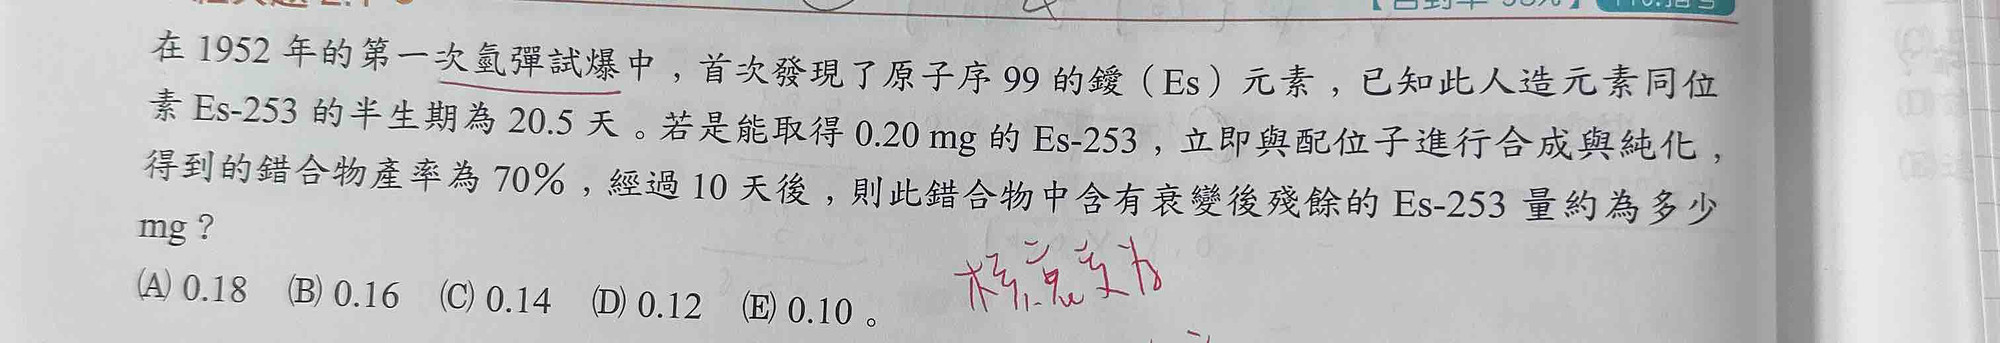 在 1952 年的第一次氫彈試爆中，首次發現了原子序 99 的鑀（Es）元素，已知此人造元素同位
素 Es-253 的半生期為 20.5 天。若是能取得 0.20 mg 的 Es-253，立即與配位子進行合成與純化，
得到的錯合物產率為 70%，經過 10 天後，則此錯合物中含有衰變後殘餘的 Es-253 量約為多少
mg？
(A) 0.18 (B) 0.16 (C) 0.14 (D) 0.12 (E) 0.10。
核衰變为